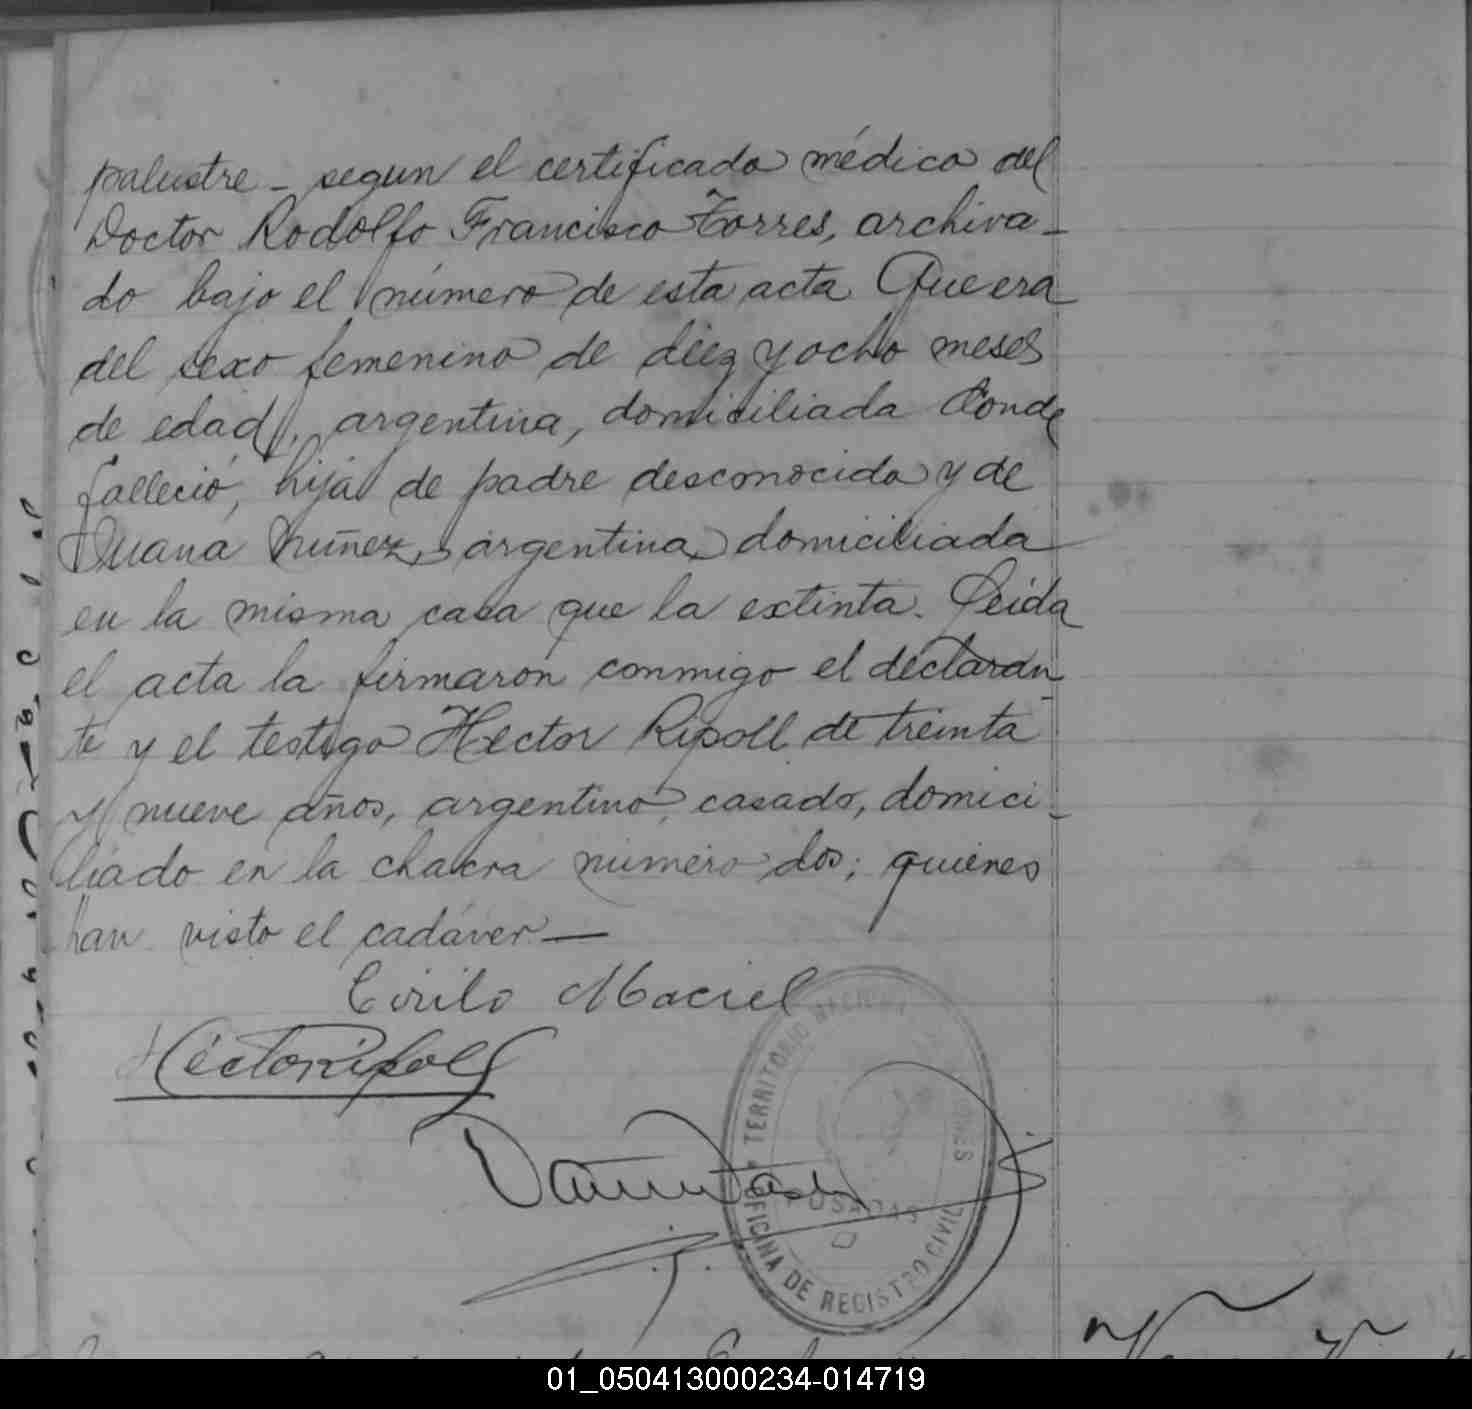 palustre - segun el certificado médico del
Doctor Rodolfo Francisco Torres, archiva-
do bajo el número de esta acta. Que era
del sexo femenino de diez y ocho meses
de edad, argentina, domiciliada donde
falleció, hija de padre desconocido y de
Juana Nuñez, argentina, domiciliada
en la misma casa que la extinta. Leída
el acta la firmaron conmigo el declaran-
te y el testigo Hector Ripoll de treinta
y nueve años, argentino, casado, domici-
liado en la chacra número dos; quienes
han visto el cadáver—
Cirilo Maciel
Hector Ripoll
TERRITORIO NACIONAL
POSADAS
OFICINA DE REGISTRO CIVIL
01_050413000234-014719